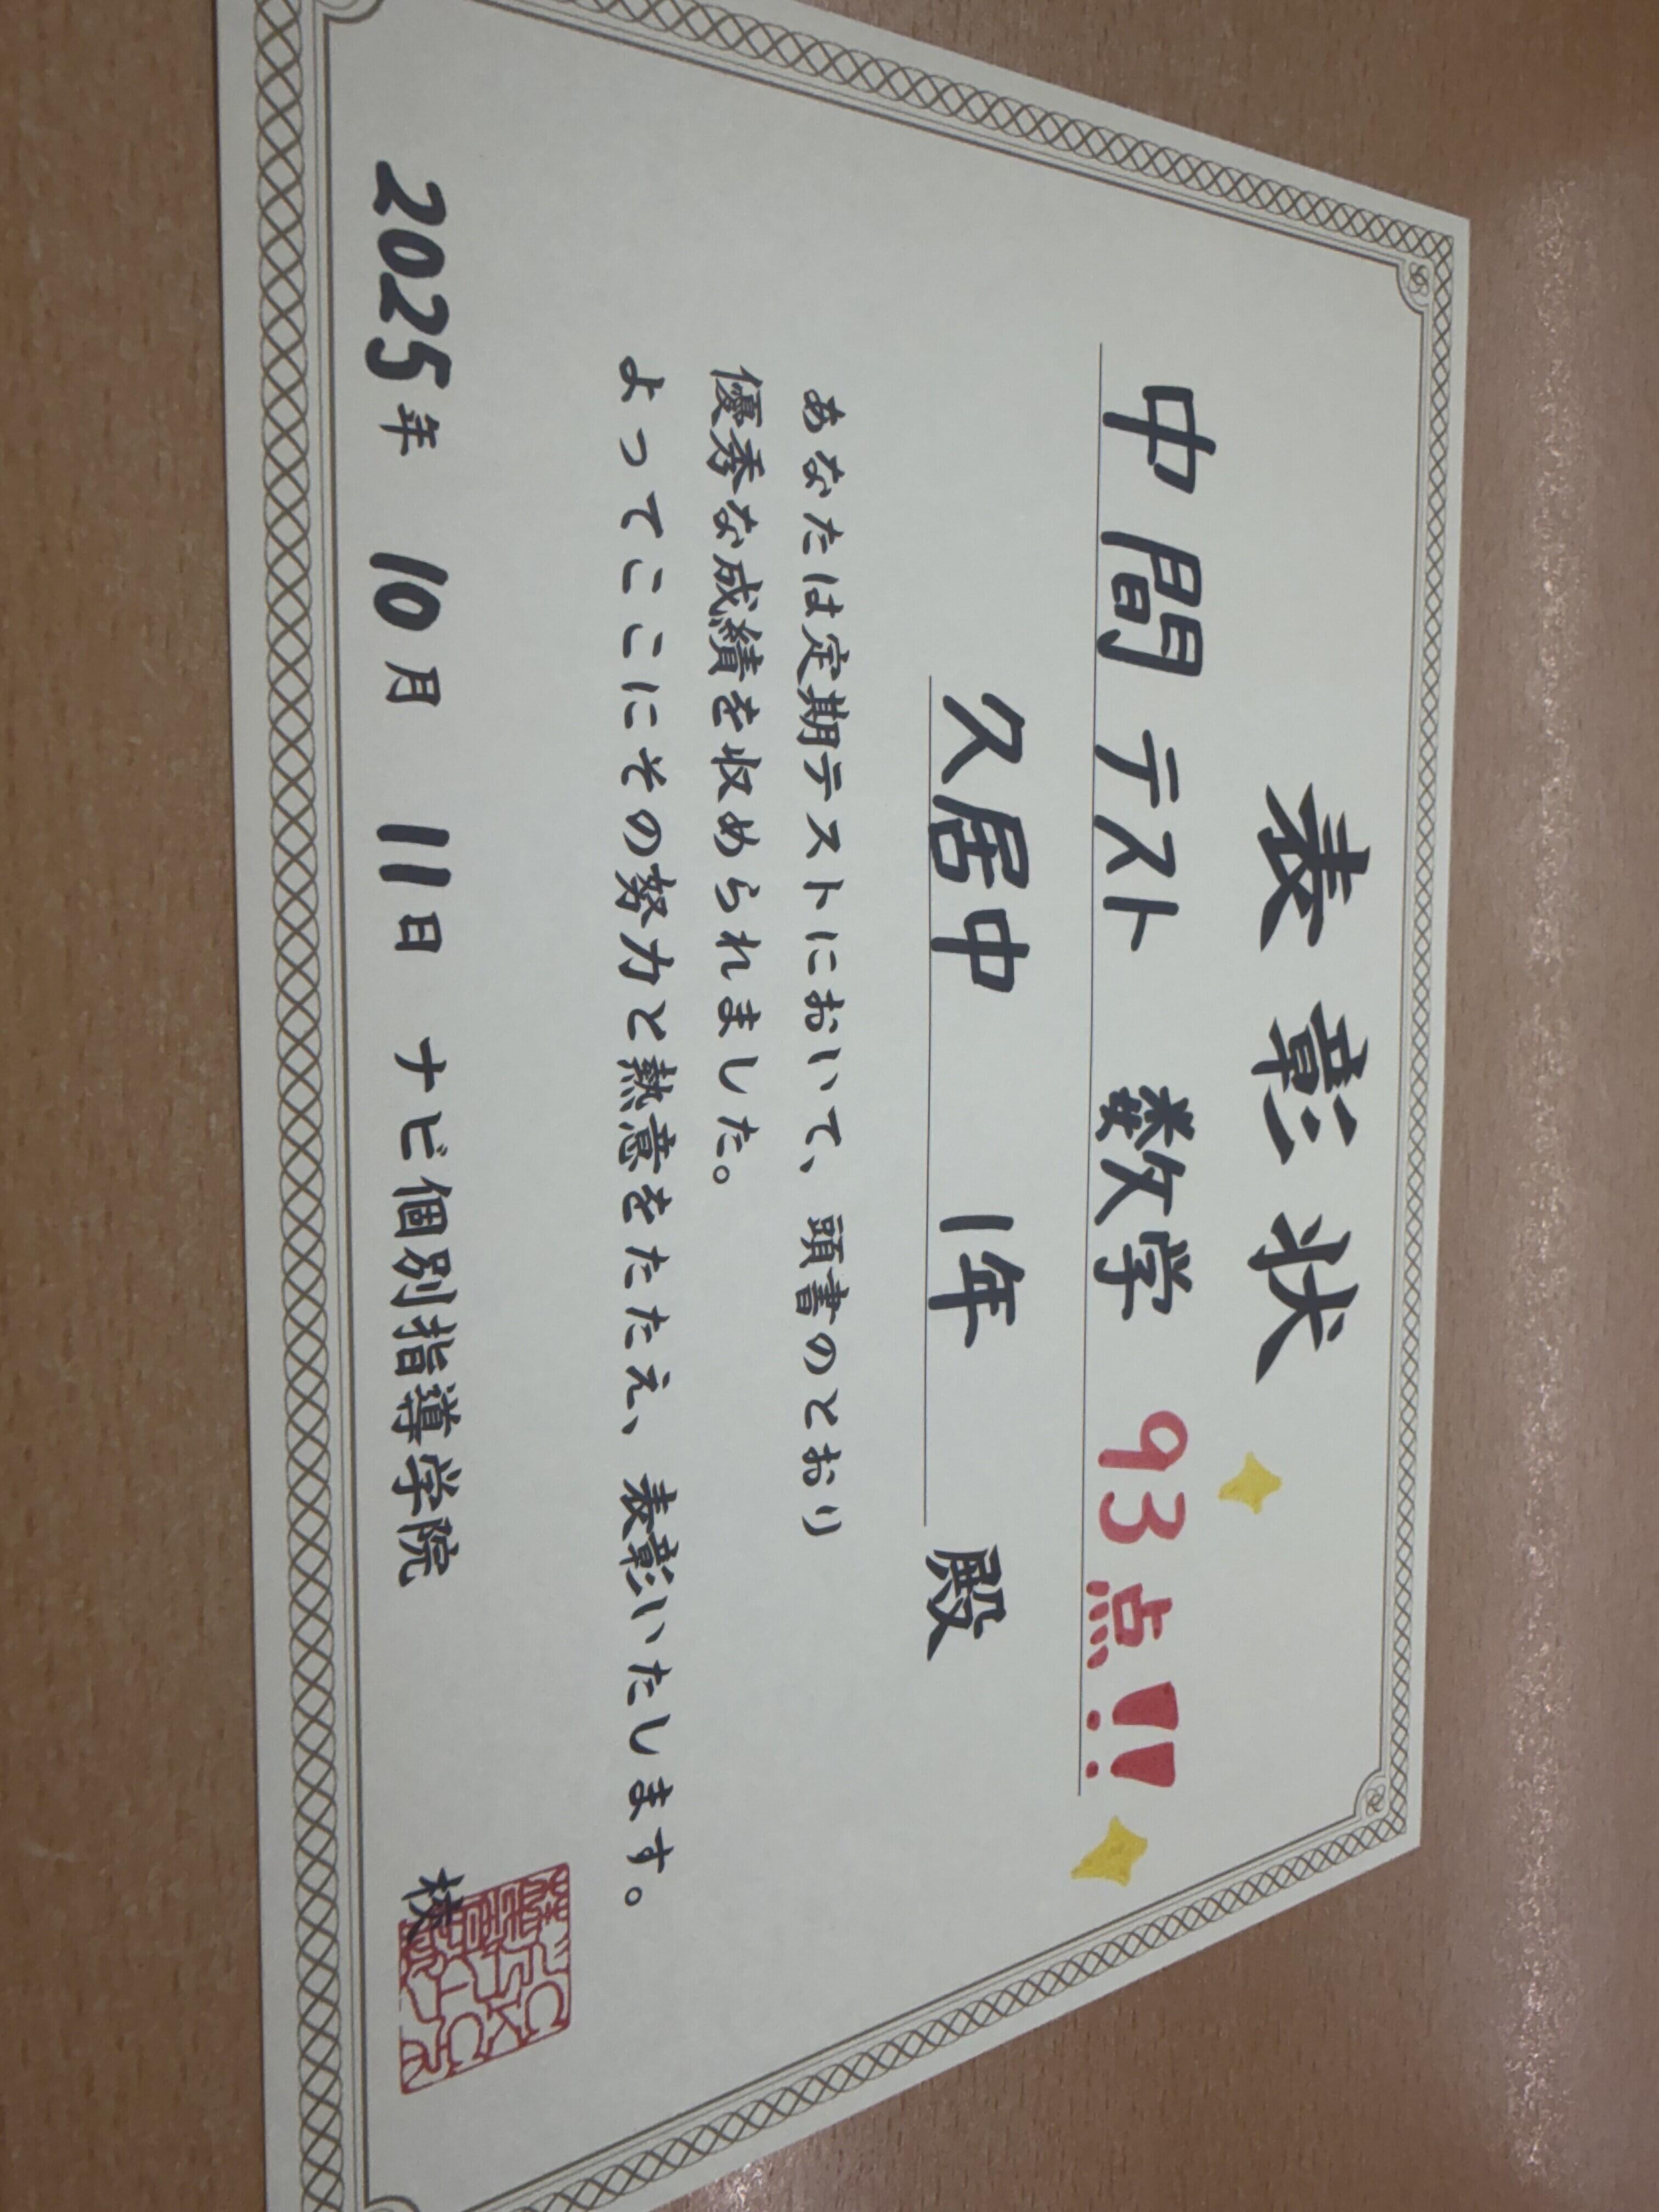 表彰状
中間テスト 数学 93点!!
久居中 1年 殿
あなたは定期テストにおいて、頭書のとおり
優秀な成績を収められました。
よってここにその努力と熱意をたたえ、表彰いたします。
2025年 10月 11日 ナビ個別指導学院 校